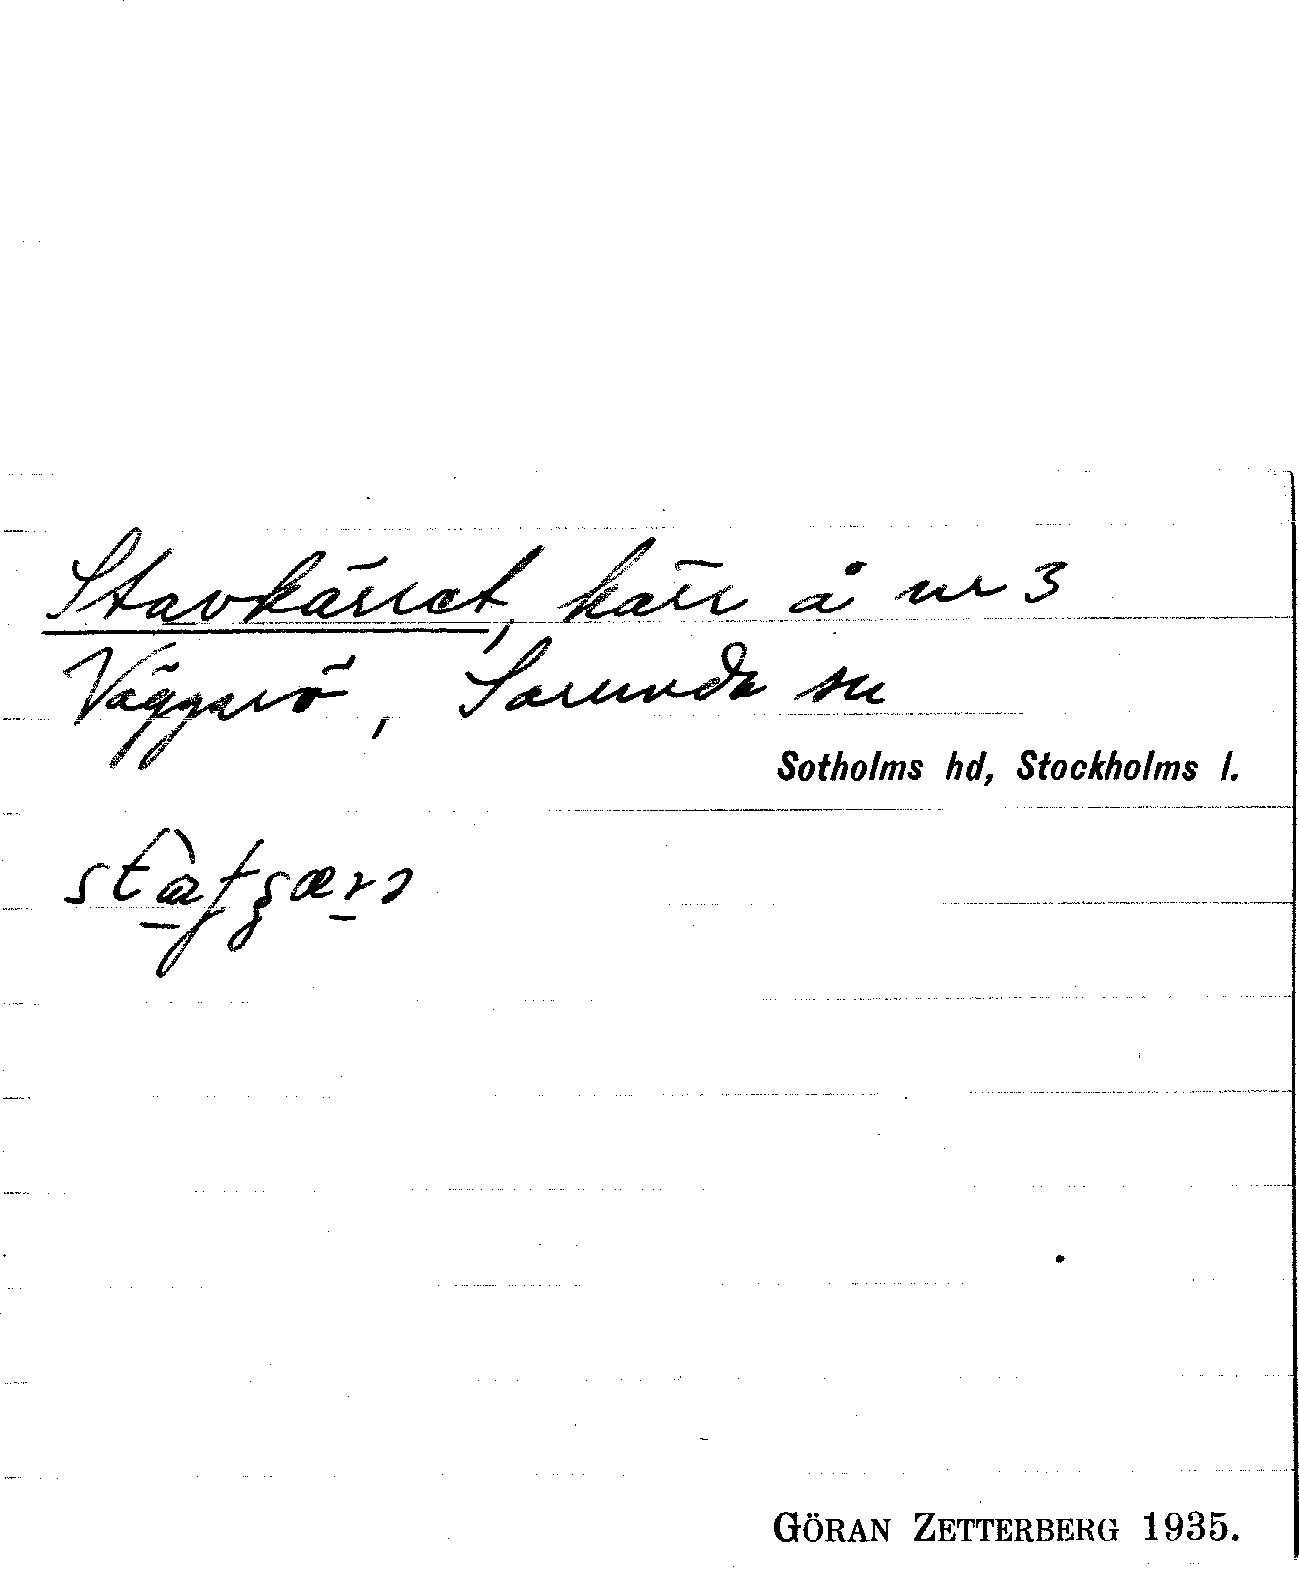 Stavkärret, kärr å nr 3
Väggarö, Sorunda sn
Sotholms hd, Stockholms l.
GÖRAN ZETTERBERG 1935.